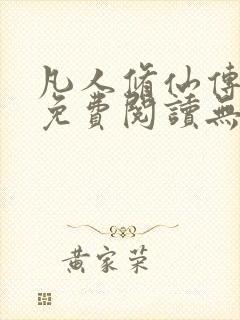 凡人脩仙傳
免費閱讀無
黃家榮